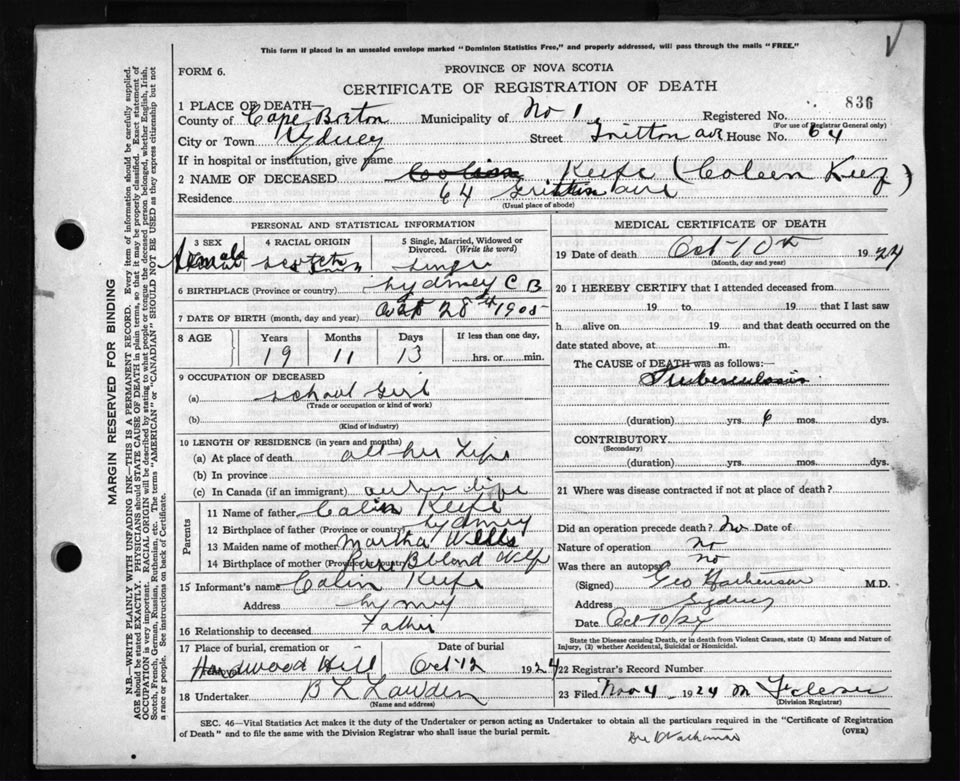 This form if placed in an unsealed envelope marked "Dominion Statistics Free," and properly addressed, will pass through the mails "FREE."
FORM 6.
PROVINCE OF NOVA SCOTIA
CERTIFICATE OF REGISTRATION OF DEATH
836
1 PLACE OF DEATH—
County of Cape Breton Municipality of No 1 Registered No.
(For use of Registrar General only)
City or Town Sydney Street Ave House No. 64
If in hospital or institution, give name
2 NAME OF DECEASED Keefe (Coleen Keef)
Residence 64 Ave
(Usual place of abode)
PERSONAL AND STATISTICAL INFORMATION
3 SEX Female
4 RACIAL ORIGIN Scotch
5 Single, Married, Widowed or Divorced. (Write the word) Single
6 BIRTHPLACE (Province or country) Sydney C B
7 DATE OF BIRTH (month, day and year) 28 1905
8 AGE Years 19 Months 11 Days 13 If less than one day, hrs. or min.
9 OCCUPATION OF DECEASED
(a) School Girl
(Trade or occupation or kind of work)
(b)
(Kind of industry)
10 LENGTH OF RESIDENCE (in years and months)
(a) At place of death all her Life
(b) In province
(c) In Canada (if an immigrant) life
Parents
11 Name of father Colin Keefe
12 Birthplace of father (Province or country) Sydney
13 Maiden name of mother Martha Wells
14 Birthplace of mother (Province or country)
15 Informant's name Colin Keefe
Address Sydney
16 Relationship to deceased Father
17 Place of burial, cremation or Date of burial
Hardwood Hill Oct 12 1924
18 Undertaker
(Name and address)
MEDICAL CERTIFICATE OF DEATH
19 Date of death Oct 10th 1924
(Month, day and year)
20 I HEREBY CERTIFY that I attended deceased from
19 to 19 that I last saw
h alive on 19 and that death occurred on the
date stated above, at m.
The CAUSE of DEATH was as follows:—
Tuberculosis
(duration) yrs. 6 mos. dys.
CONTRIBUTORY
(Secondary)
(duration) yrs. mos. dys.
21 Where was disease contracted if not at place of death?
Did an operation precede death? No Date of
Nature of operation No
Was there an autopsy No
(Signed) Geo M.D.
Address Sydney
Date Oct 10/24
State the Disease causing Death, or in death from Violent Causes, state (1) Means and Nature of Injury, (2) whether Accidental, Suicidal or Homicidal.
22 Registrar's Record Number
23 Filed Nov 4 1924
(Division Registrar)
SEC. 46—Vital Statistics Act makes it the duty of the Undertaker or person acting as Undertaker to obtain all the particulars required in the "Certificate of Registration
of Death" and to file the same with the Division Registrar who shall issue the burial permit.
(OVER)
MARGIN RESERVED FOR BINDING
N.B.—WRITE PLAINLY WITH UNFADING INK—THIS IS A PERMANENT RECORD. Every item of information should be carefully supplied.
AGE should be stated EXACTLY. PHYSICIANS should STATE CAUSE OF DEATH in plain terms, so that it may be properly classified. Exact statement of
OCCUPATION is very important. RACIAL ORIGIN will be described by stating to what people or tongue the deceased person belonged, whether English, Irish,
Scotch, French, German, Russian, Ruthenian, etc. The terms "AMERICAN" or "CANADIAN" SHOULD NOT BE USED as they express citizenship but not
a race or people. See instructions on back of Certificate.